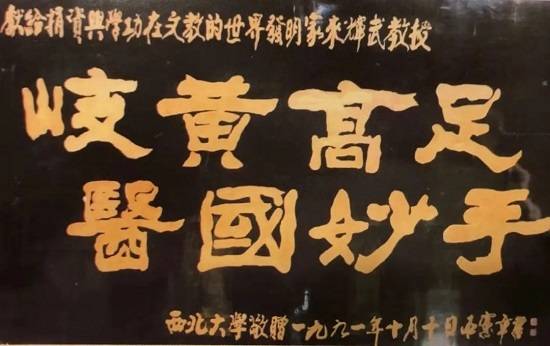 獻給捐資興學功在文教的世界發明家來輝武教授
岐黄髙足
醫國妙手
西北大學敬贈一九九一年十月十日